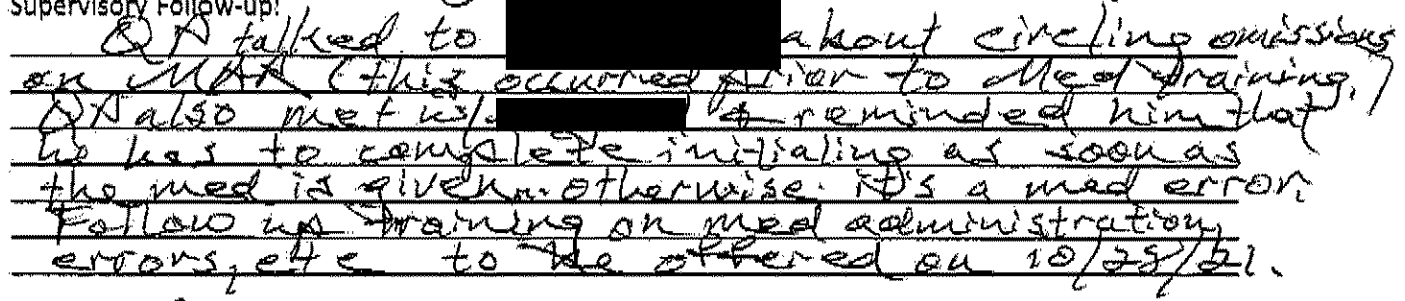 Supervisory Follow-up:
QA talked to about circling omissions
on MAR (this occurred prior to Med training.)
QA also met w/ & reminded him that
he has to complete initialing as soon as
the med is given... otherwise it's a med error.
Follow up training on med administration,
errors, etc to be offered on 10/28/21.